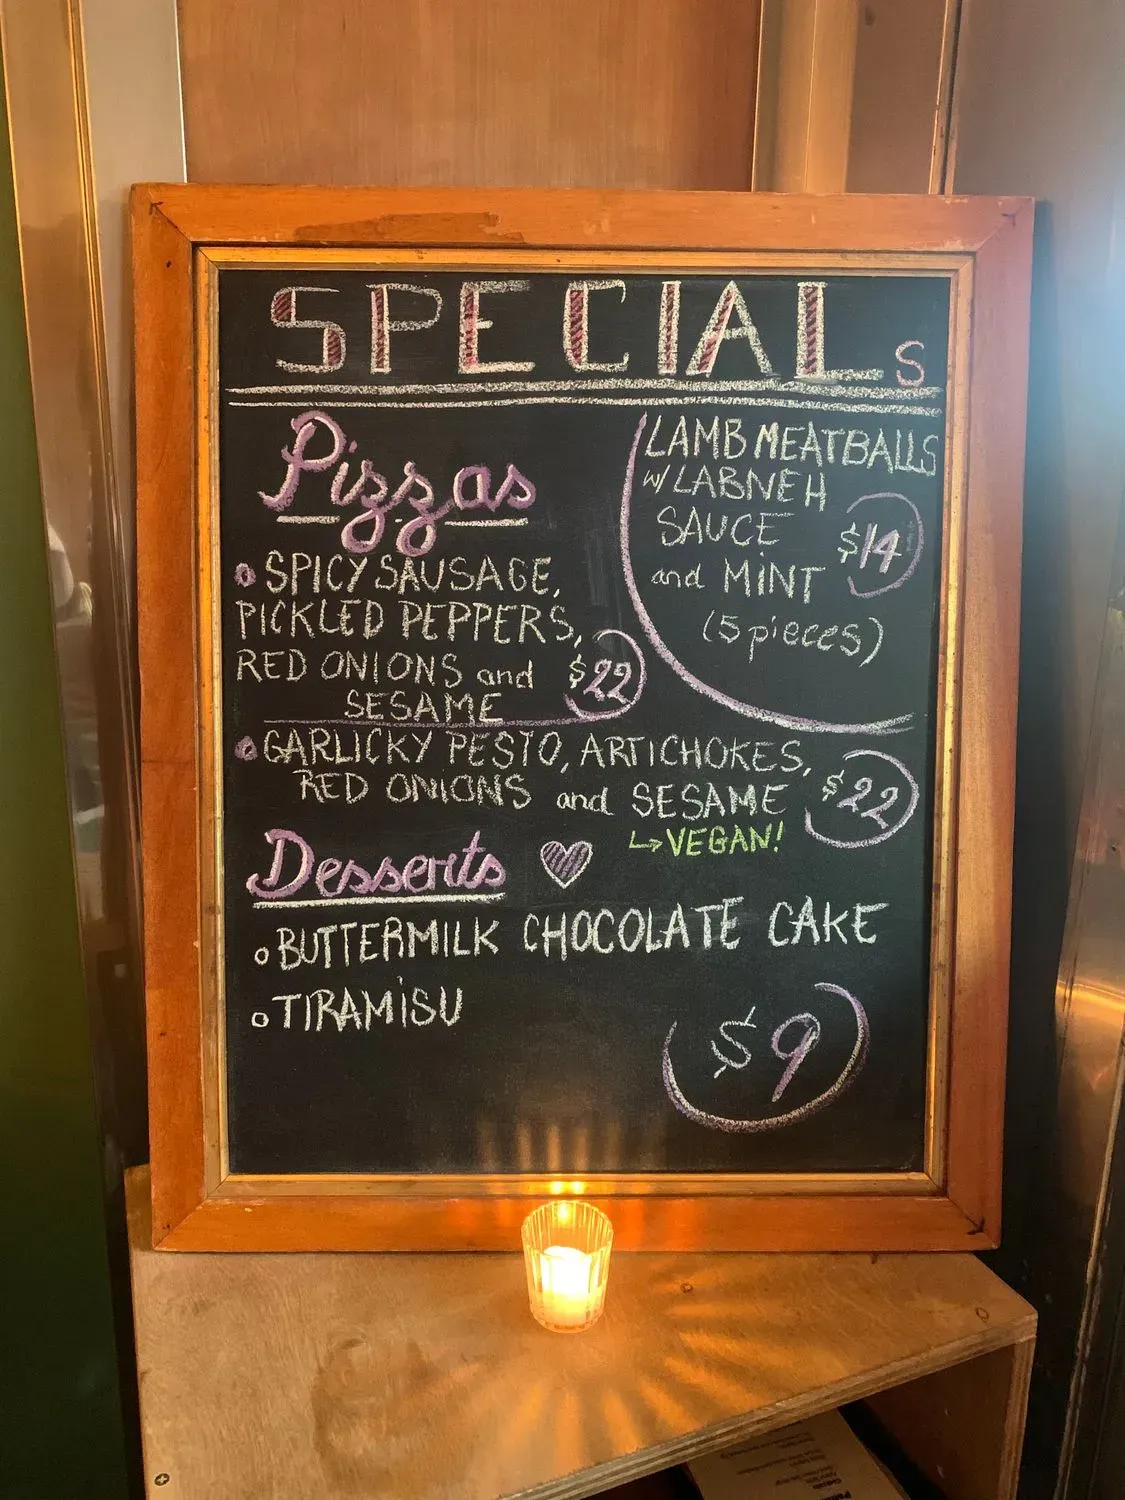 SPECIALS
Pizzas
SPICY SAUSAGE,
PICKLED PEPPERS,
RED ONIONS and
SESAME
$22
LAMB MEATBALLS
w/ LABNEH
SAUCE
and MINT
(5 pieces)
$14
GARLICKY PESTO, ARTICHOKES,
RED ONIONS and SESAME
$22
↳VEGAN!
Desserts
BUTTERMILK CHOCOLATE CAKE
TIRAMISU
$9